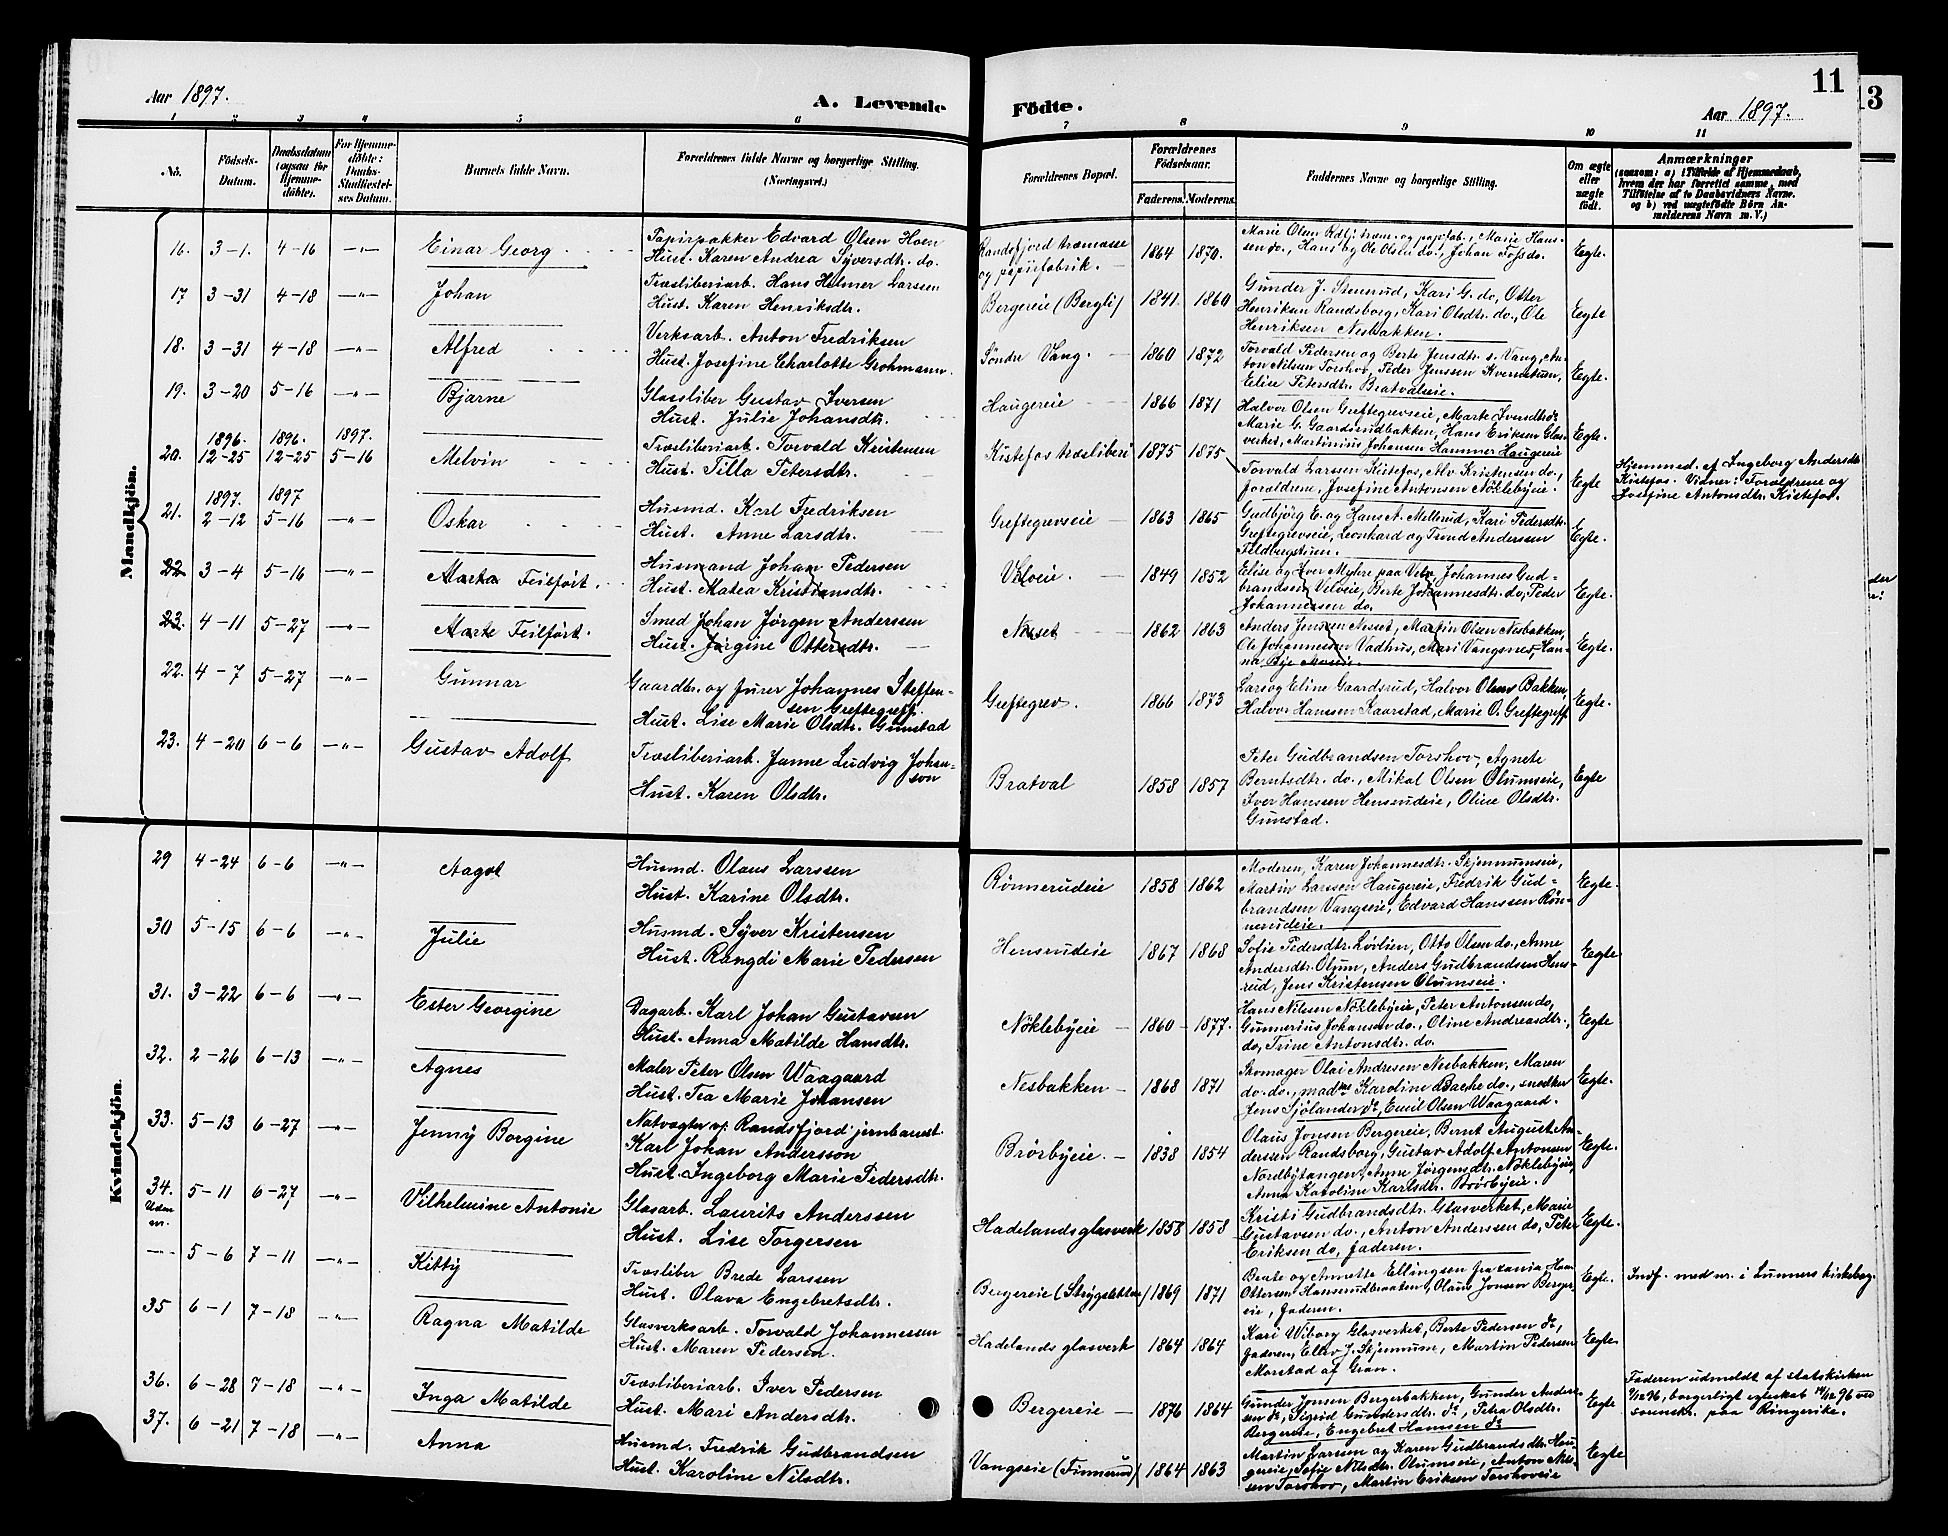 11
13
Aar 1897.
A. Levende
Födte.
Aar 1897.
1 2 3 4 5 6 7 8 9 10 11
No.
Födsels-
Datum.
Daabsdatum
(ogsaa for
Hjemme-
döbte).
For Hjemme-
döbte:
Daabs-
Stadfæstel-
ses Datum.
Barnets fulde Navn.
Forældrenes fulde Navne og borgerlige Stilling.
(Næringsvei.)
Forældrenes Bopæl.
Forældrenes
Födselsaar.
Faderens. Moderens.
Faddernes Navne og borgerlige Stilling.
Om ægte
eller
uægte
födt.
Anmærkninger
(saasom: a) i Tilfælde af Hjemmedaab,
hvem der har forrettet samme, med
Tilföielse af to Daabsvidners Navne.
og b) ved uægtefödte Börn An-
melderens Navn m. V.)
Mandkjön.
16. 3-1. 4-16 -"- Einar Georg
Papirpakker Edvard Olsen Hoen
Hust. Karen Andrea Syversdtr. do.
Randsfjord træmasse
og papirfabrik. 1864 1870.
Marie Olsen Rdsfj. træm. og papirfab., Marie Han-
sen do., Hans og Ole Olsen do., Johan Foss do.
Egte.
17 3-31 4-18 -"- Johan
Træsliberiarb. Hans Helmer Larsen
Hust. Karen Henriksdtr.
Bergereie (Bergli) 1841. 1860
Gunder J. Stenerud, Kari G. do, Otter
Henriksen Randsborg, Kari Olsdtr. do., Ole
Henriksen Nesbakken.
Egte
18. 3-31 4-18 -"- Alfred
Verksarb. Anton Fredriksen
Hust. Josefine Charlotte Grohmann.
Söndre Vang. 1860 1872
Torvald Pedersen og Berte Jensdtr. s. Vang, An-
ton Nilsen Torshov, Peder Jenssen Kvernstuen,
Elise Petersdtr. Bratvaleie.
Egte.
19. 3-20 5-16 -"- Bjarne
Glassliber Gustav Iversen
Hust. Julie Johansdtr.
Haugereie 1866 1871
Halvor Olsen Greftegrevseie, Marte Iversdtr. do
Marie G. Gaardsrudbakken, Hans Eriksen Glas-
verket, Martinius Johansen Hammer Haugereie
Egte.
20. 1896. 12-25 1896. 12-25 1897. 5-16 Melvin
Træsliberiarb. Torvald Kristensen
Hust. Tilla Petersdtr.
Kistefos træsliberi 1875 1875
Torvald Larssen Kistefos, Alv. Kristensen do.,
forældrene, Josefine Antonsen Nöklebyeie.
Egte
Hjemmed. af Ingeborg Andersdtr.
Kistefos. Vidner: Forældrene og
Josefine Antonsdtr. Kistefos.
21. 1897. 2-12 1897 5-16 -"- Oskar
Husmd. Karl Fredriksen
Hust. Anne Larsdtr.
Greftegrevseie 1863 1865
Gudbjörg E. og Hans A. Mellerud, Kari Pedersdtr.
Greftegrevseie, Leonhard og Trond Anderssen
Feldbergstuen.
Egte.
22 3-4 5-16 -"- Marta Feilfört.
Husmand Johan Pedersen
Hust. Matea Kristiansdtr.
Velveie. 1849 1852
Elise og Iver Myhre paa Velv. Johannes Gud-
brandsen Velveie, Berte Johannesdtr. do, Peder
Johannessen do.
Egte.
23. 4-11 5-27 -"- Marte Feilfört.
Smed Johan Jörgen Anderssen
Hust. Jörgine Ottersdtr.
Neset 1862 1863
Anders Jenssen Nesset, Martin Olsen Nesbakken,
Ole Johannessen Vadhus, Mari Vangsnes, Han-
na Bye Moseie.
Egte.
22. 4-7 5-27 -"- Gunnar
Gaardbr. og Jurer Johannes Steffen-
sen Greftegreff.
Hust. Lise Marie Olsdtr. Gunstad
Greftegrev. 1866 1873
Lars og Eline Gaardsrud, Halvor Olsen Bakken,
Halvor Hanssen Kaarstad, Marie O. Greftegreff.
Egte.
23. 4-20 6-6 -"- Gustav Adolf
Træsliberiarb. Janne Ludvig Johan-
son
Hust. Karen Olsdtr.
Bratval 1858 1857
Peter Gudbrandsen Torshov, Agnete
Berntsdtr. do., Mikal Olsen Olumseie,
Iver Hanssen Hensrudeie, Oline Olsdtr.
Gunstad.
Egte
Kvindekjön.
29 4-24 6-6 -"- Aagot
Husmd. Olaus Larssen
Hust. Karine Olsdtr.
Rönnerudeie 1858 1862
Moderen, Karen Johannesdtr. Skjennumseie,
Martin Larssen Haugereie, Fredrik Gud-
brandsen Vangseie, Edvard Hanssen Rön-
nerudeie.
Egte.
30 5-15 6-6 -"- Julie
Husmd. Syver Kristensen
Hust. Rangdi Marie Pedersen
Hensrudeie 1867 1868
Sofie Pedersdtr. Lövlien, Otto Olsen do., Anne
Andersdtr. Olum, Anders Gudbrandsen Hens-
rud, Jens Kristensen Olumseie.
Egte
31. 3-22 6-6 -"- Ester Georgine
Dagarb. Karl Johan Gustavsen
Hust. Anna Matilde Hansdtr.
Nöklebyeie 1860 1877.
Hans Nilsen Nöklebyeie, Peter Antonsen do,
Gunnerius Johansen do., Oline Andreasdtr.,
do, Trine Antonsdtr. do.
Egte
32. 2-26 6-13 -"- Agnes
Maler Peter Olsen Waagaard
Hust. Tea Marie Johansen
Nesbakken 1868 1871
Skomager Olai Andresen Nesbakken, Maren
do. do., mad.me Karoline Bache do., snedker
Jens Sjölander do, Emil Olsen Waagaard.
Egte.
33. 5-13 6-27 -"- Jenny Borgine
Natvægter v. Randsfjord jernbanest.
Karl Johan Andersson
Hust. Ingeborg Marie Pedersdtr.
Brörbyeie. 1838 1854
Olaus Jonsen Bergereie, Bernt August An-
derssen Randsborg, Gustav Adolf Antonsen
Nordbytangen, Anne Jörgensdtr. Nöklebyeie,
Anna Karoline Karlsdtr. Brörbyeie.
Egte.
34. 5-11 6-27 -"- Vilhelmine Antonie
Uden
nr.
Glasarb. Laurits Anderssen
Hust. Lise Torgersen
Hadelands glasverk 1858 1858
Kristi Gudbrandsdtr. Glasverket, Marie
Gustavsen do., Anton Anderssen do, Peter
Eriksen do, faderen.
Egte.
5-6 7-11 -"- Kitty
Træsliber Brede Larssen
Hust. Olava Engebretsdtr.
Bergereie (Strygsletten) 1869 1871
Beate og Annette Ellingsen fra
Ottersen Hansrudbraaten, Olaus Jonsen Berger-
eie, faderen.
Egte.
Indf. med nr. i Lunners kirkebog.
35 6-1 7-18 -"- Ragna Matilde
Glasverksarb. Torvald Johannessen
Hust. Maren Pedersen.
Hadelands glasverk 1864 1864
Kari Wiborg Glasverket, Berte Pedersen do,
faderen, Ellev J. Skjennum, Martin Pedersen
Morstad af Gran.
Egte.
36. 6-28 7-18 -"- Inga Matilde
Træsliberiarb. Iver Pedersen
Hust. Mari Andersdtr.
Bergereie 1876 1864
Gunder Jonsen Bergerbakken, Gunder Ander-
sen do, Sigrid Gundersdtr. do, Petra Olsdtr.
Bergereie, Engebret Hansen do
Egte
Faderen udmeldt af statskirken
9/12 96, borgerligt egteskab 14/12 96 ved
sorenskr. paa Ringerike.
37. 6-21 7-18 -"- Anna
Husmd. Fredrik Gudbrandsen
Hust. Karoline Nilsdtr.
Vangseie (Finnerud) 1864 1863
Martin Larsen og Karen Gudbrandsdtr. Hau-
gereie, Sofie Nilsdtr. Olumseie, Anton Nil-
sen Torshov, Martin Eriksen Torshoveie
Egte